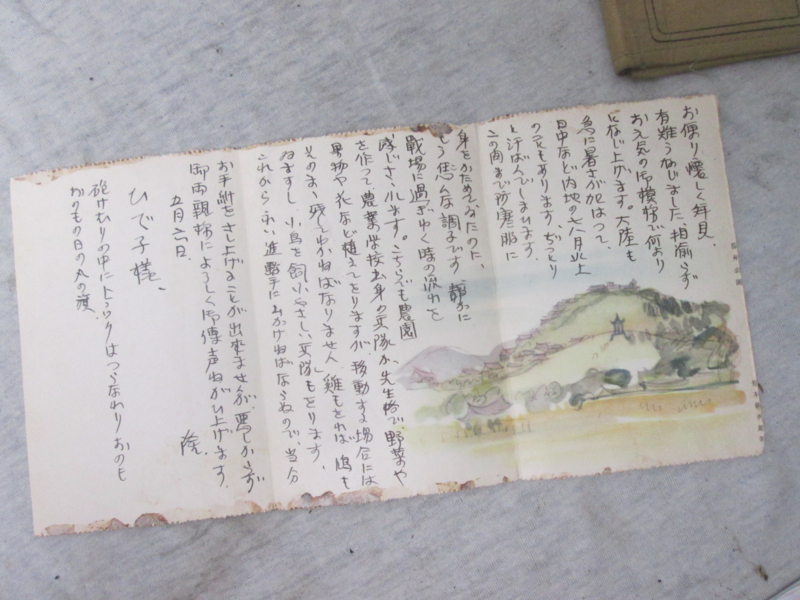 お便り懐しく拝見、
有難うねじました、相愉らず
お元気の御様紛で何より
になじ上げます。大陸も
急に暑さが加はつて、
日中など内地の七八月以上
の日もあります、ぢつとり
と汗ばんでしまひます、
この間まで防寒服に
身をかためてゐたのに、
もう こんな調子です 静かに
戦場に過ぎゆく時の流れを
感じさゝれます。こちらでも農園
を作つて農業学校出身の兵隊が先生格で 野菜や
果物や花など植えてをりますが、移動する場合には
そのまゝ残してゆかねばなりません、雞もをれば 鳩も
ゐますし、小鳥を飼ふやさしい兵隊もをります、
これから 永い進軍にも出かけねばならぬので、当分
お手紙をさし上げることが出来ませんが、悪しからず
御両親様によろしく御傳声ねがひ上げます、
五月六日、
隆
ひで子様、
砲けむりの中にトラックはつらなれり おのも
おのもの日の丸の旗、